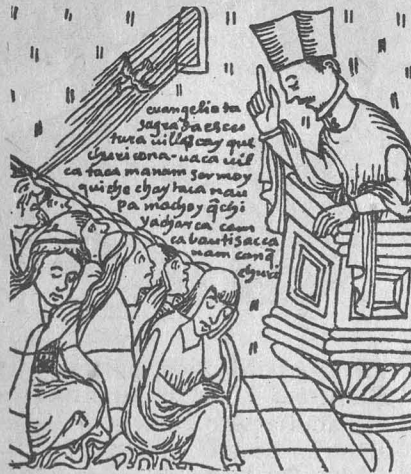 euangelio ta
sagrada escri
tura uillascay que
churicona - uaca uil
ca taca manam sermoy
quicho chay taca nau
pa machoy q̃chi
yacharca cam
ca bautisacca
nam canq̃
churi